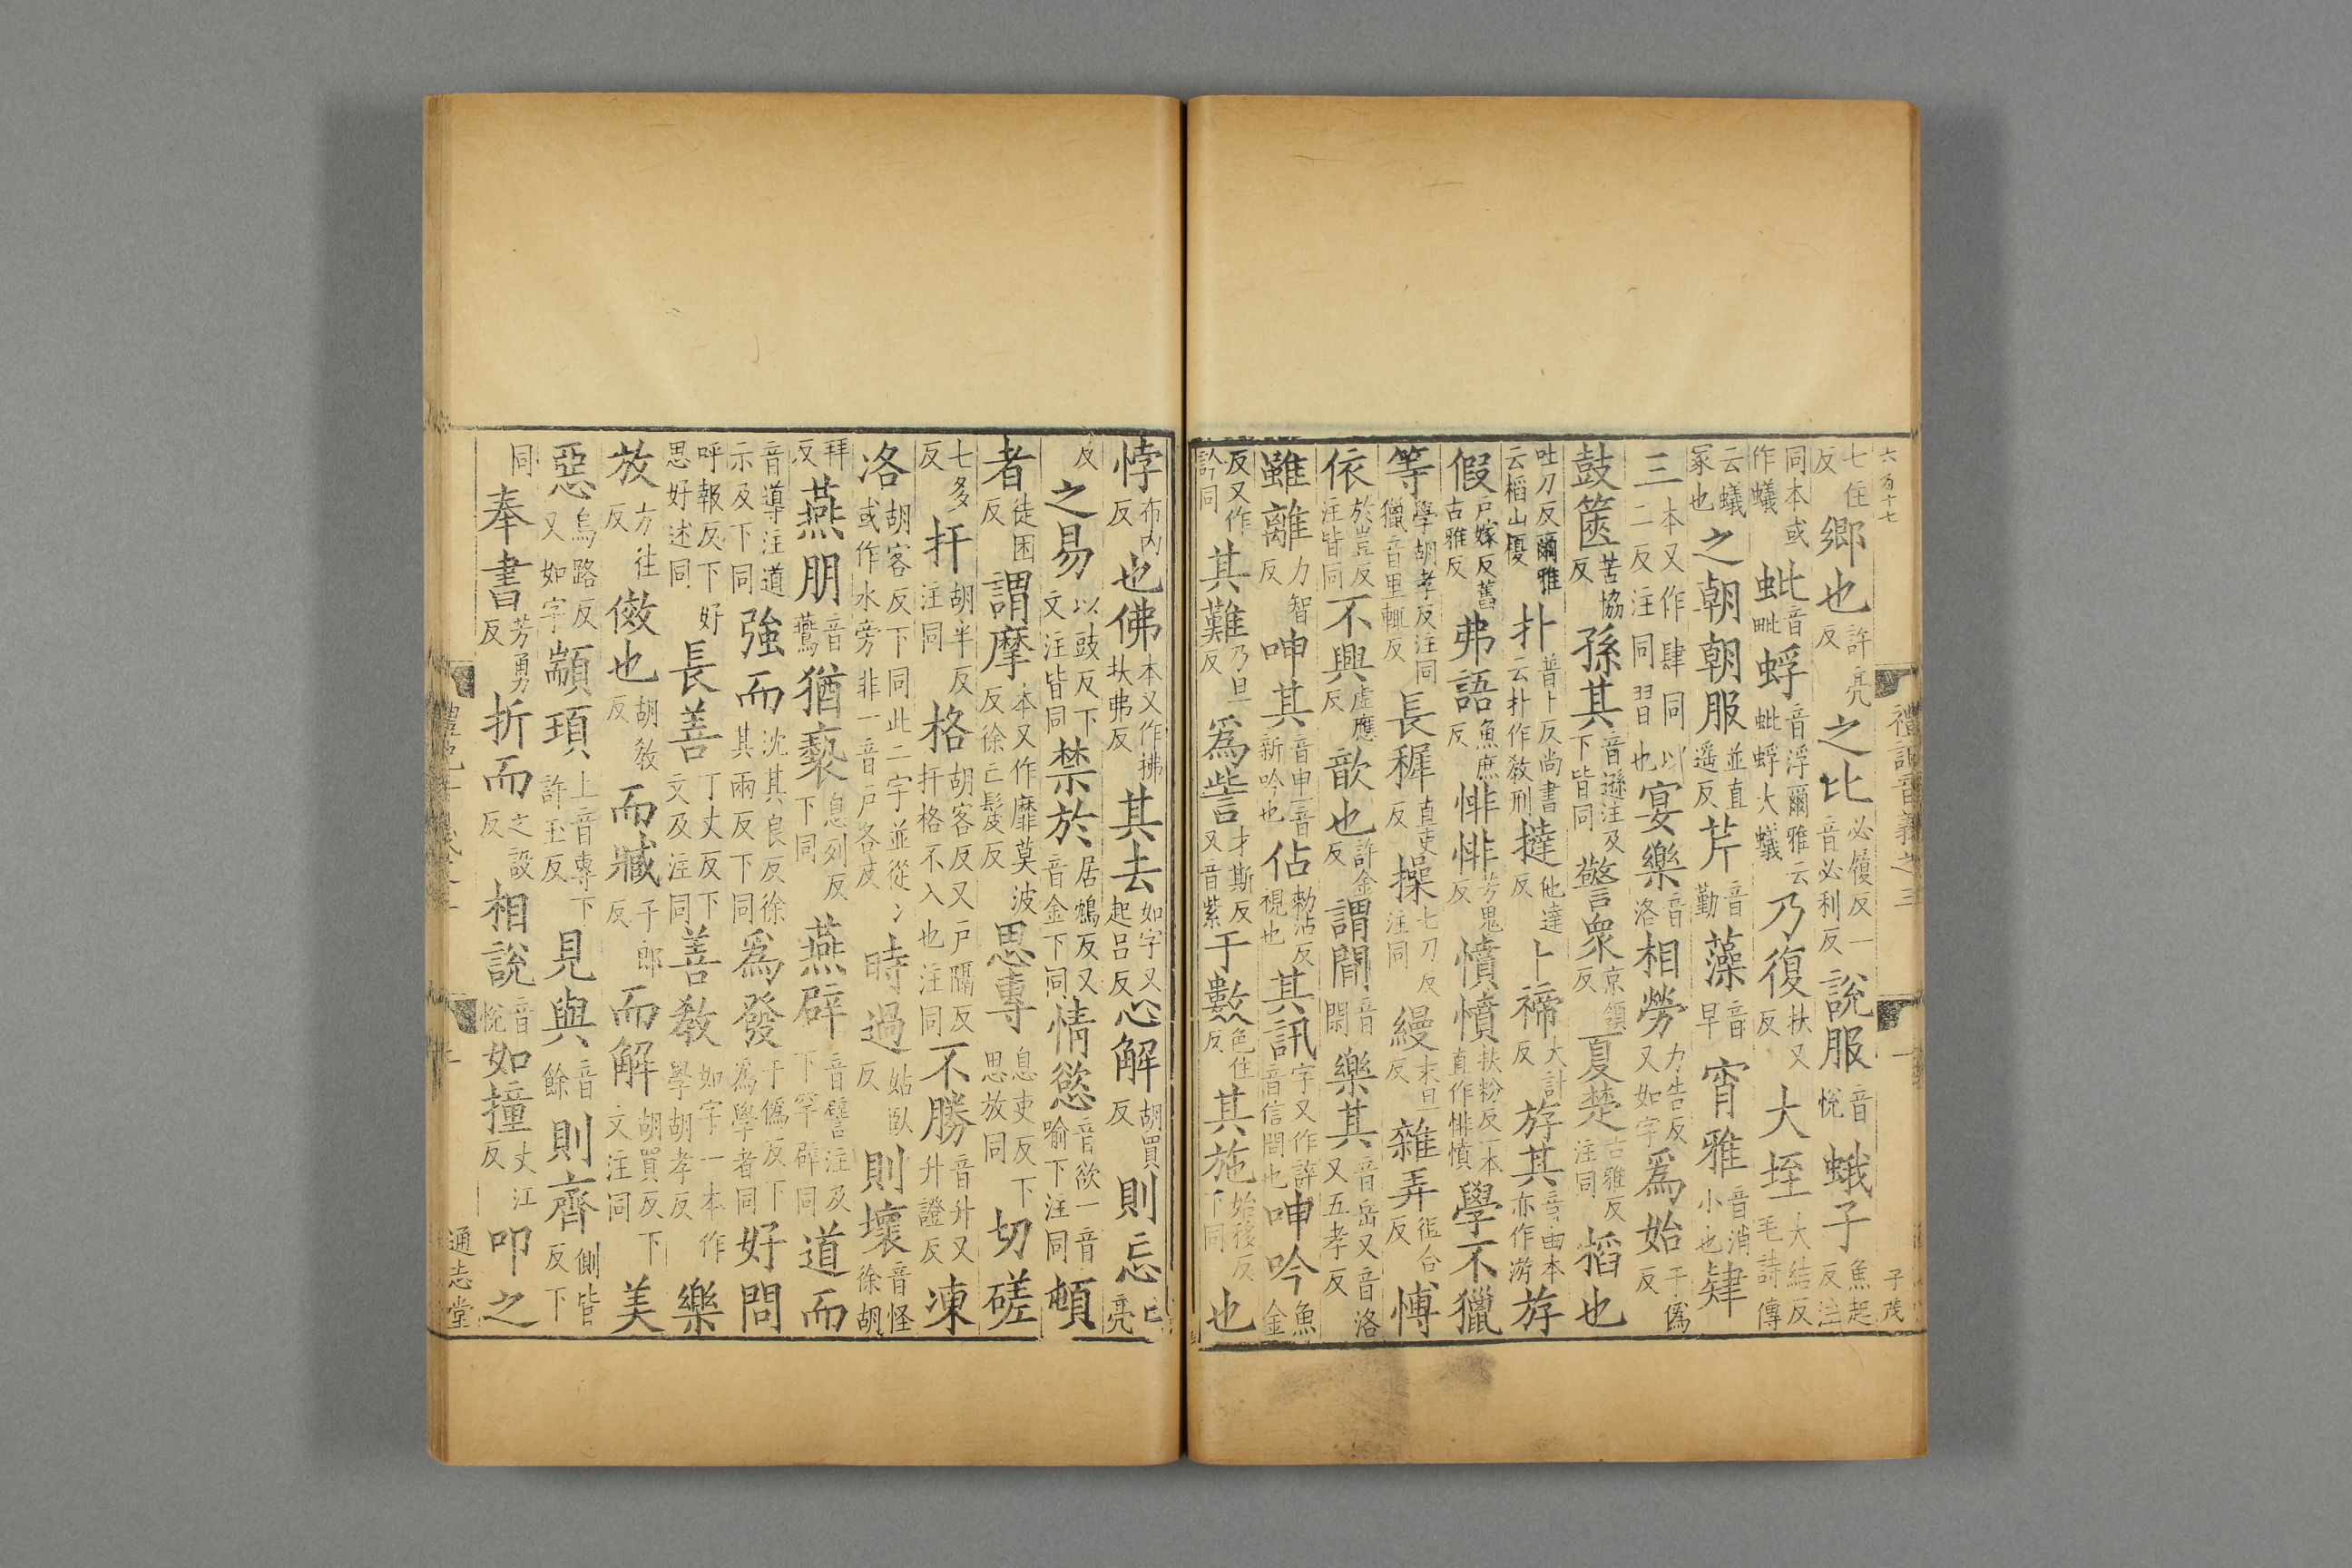 六百十七 禮記音義之三 一 子茂
七住反鄉也許亮反之比必履反一音必利反說服音悅蛾子魚起反注
同本或作蟻蚍音毗蜉音浮爾雅云蚍蜉大蟻乃復扶又反大垤大結反毛詩傳
云蟻冢也之朝朝服並直遥反芹音勤藻音早宵雅音消小也肄
本又作肆同以二反注同習也三宴樂音洛相勞力告反又如字爲始于僞反
鼓篋苦協反孫其音遜注及下皆同警衆京領反夏楚古雅反注同榙也
吐刀反爾雅云榙山榎扑普卜反尚書云扑作教刑撻他達反卜禘大計反斿其音由本亦作游斿
假戸嫁反舊古雅反弗語魚庶反悱悱芳鬼反憤憤扶粉反一本直作悱憤學不獵
等學胡孝反注同獵音里輒反長穉直吏反操七刀反注同縵末旦反雜弄徂合反愽
依於豈反注皆同不興虛應反歆也許金反謂閒音閑樂其音岳又音洛又五孝反
雖離力智反呻其音申一音新吟也佔勑沾反視也其訊字又作誶音信問也呻吟魚金
反又作訡同其難乃旦反爲訾才斯反又音紫于數色住反其施始移反下同也
悖布内反也佛本又作拂扶弗反其去如字又起吕反心解胡買反則忘亡亮
反之易以豉反下文注皆同禁於居鴆反又音金下同情慾音欲一音喻下注同頓
者徒困反謂摩本又作靡莫波反徐亡髲反思專息吏反下思放同切磋
七多反扞胡半反注同格胡客反又戸隔反扞格不入也注同不勝音升又升證反凍
洛胡客反下同此二字並從冫或作水旁非一音戸各反時過姑臥反則壞音怪徐胡
拜反燕朋音鷰猶褻息列反下同燕辟音譬注及下罕辟同道而
音導注道示及下同強而沈其良反徐其兩反下同爲發于僞反下爲學者同好問
呼報反下好思好述同長善丁丈反下文及注同善教如字一本作學胡孝反樂
放方往反傚也胡教反而臧子郎反而解胡買反下文注同美
惡烏路反又如字顓頊上音專下許玉反見與音餘則齊側皆反下
同奉書芳勇反折而之設反相說音悅如撞丈江反叩之
通志堂